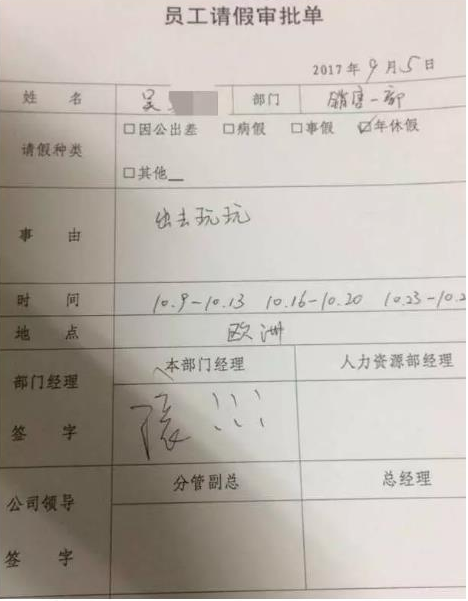 员工请假审批单
2017年9月5日
姓 名 吴 部门 销售一部
请假种类 □因公出差 □病假 □事假 ☑年休假
□其他__
事 由 出去玩玩
时 间 10.9-10.13 10.16-10.20 10.23-10.2
地 点 欧洲
部门经理 本部门经理 人力资源部经理
签 字 !!!
分管副总 总经理
公司领导
签 字